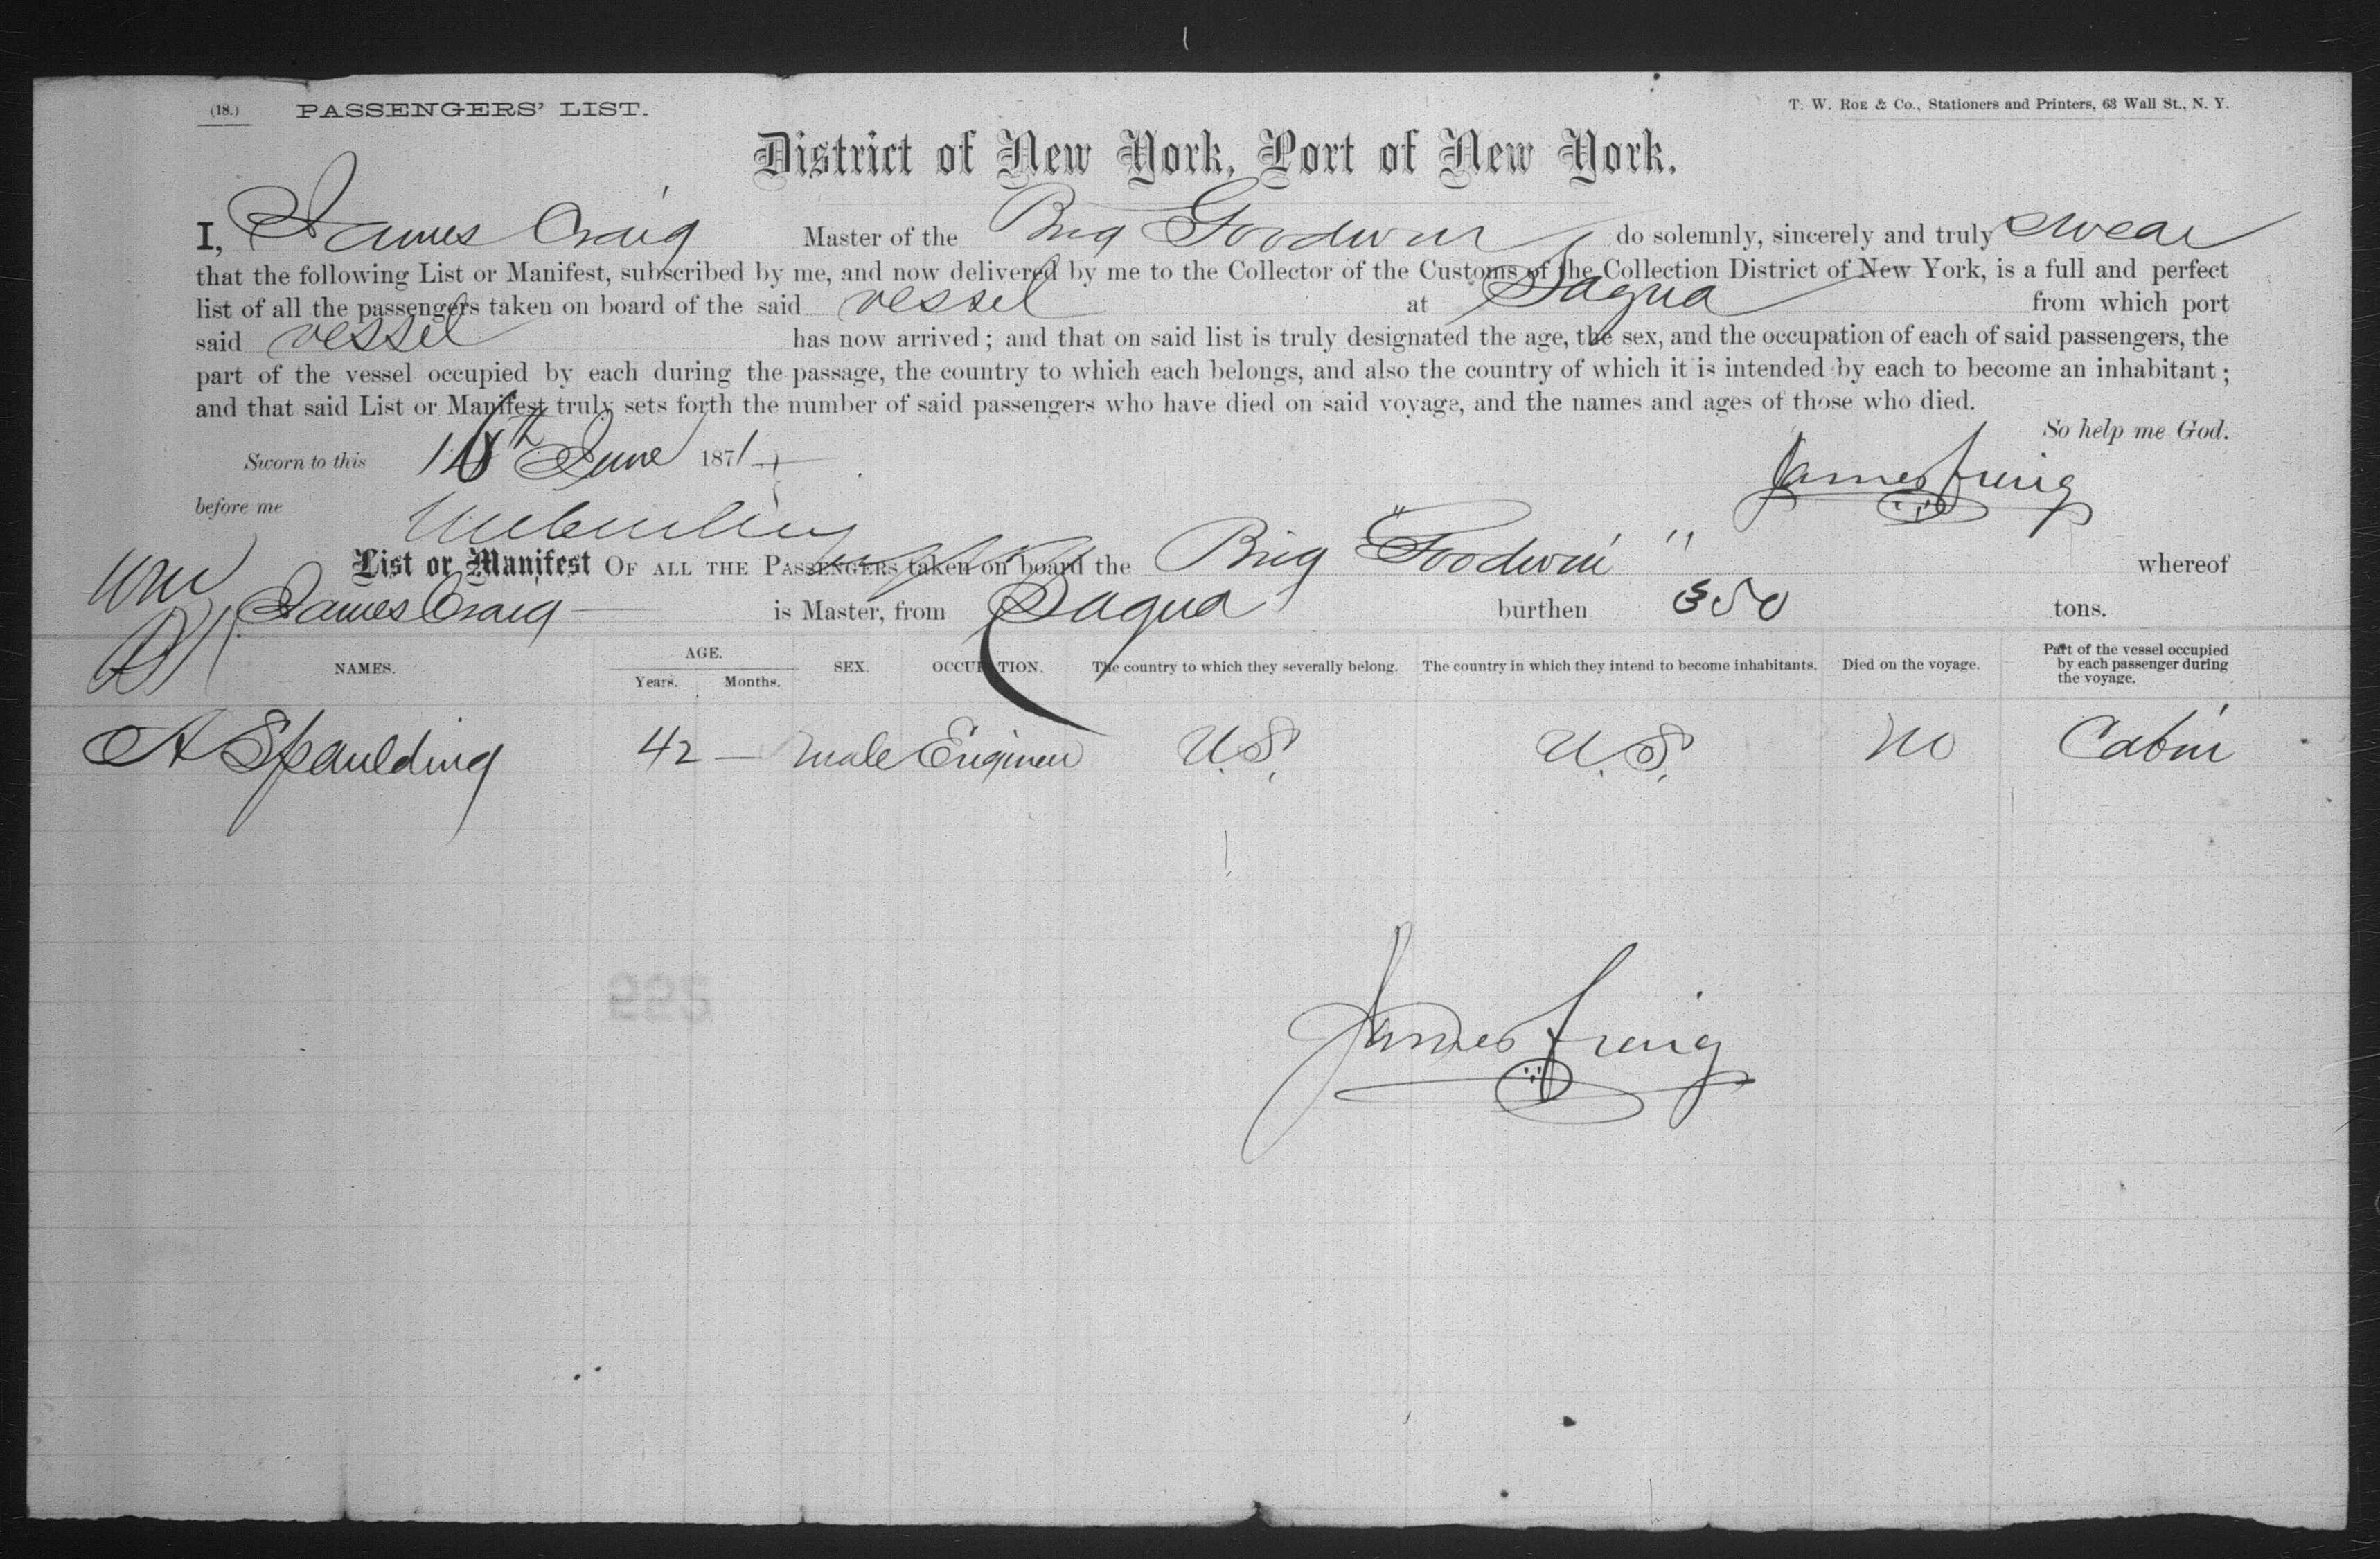 (18.) PASSENGERS' LIST.
T. W. Roe & Co., Stationers and Printers, 63 Wall St., N. Y.
District of New York, Port of New York.
I, James Craig Master of the Brig Goodwin do solemnly, sincerely and truly swear
that the following List or Manifest, subscribed by me, and now delivered by me to the Collector of the Customs of the Collection District of New York, is a full and perfect
list of all the passengers taken on board of the said vessel at Sagua from which port
said vessel has now arrived; and that on said list is truly designated the age, the sex, and the occupation of each of said passengers, the
part of the vessel occupied by each during the passage, the country to which each belongs, and also the country of which it is intended by each to become an inhabitant;
and that said List or Manifest truly sets forth the number of said passengers who have died on said voyage, and the names and ages of those who died.
So help me God.
Sworn to this June 1871
James Craig
before me
List or Manifest OF ALL THE PASSENGERS taken on board the Brig "Goodwin" whereof
James Craig is Master, from Sagua burthen 350 tons.
NAMES. AGE. Years. Months. SEX. OCCUPATION. The country to which they severally belong. The country in which they intend to become inhabitants. Died on the voyage. Part of the vessel occupied by each passenger during the voyage.
A Spaulding 42 — male Engineer U.S. U.S. no Cabin
225
James Craig